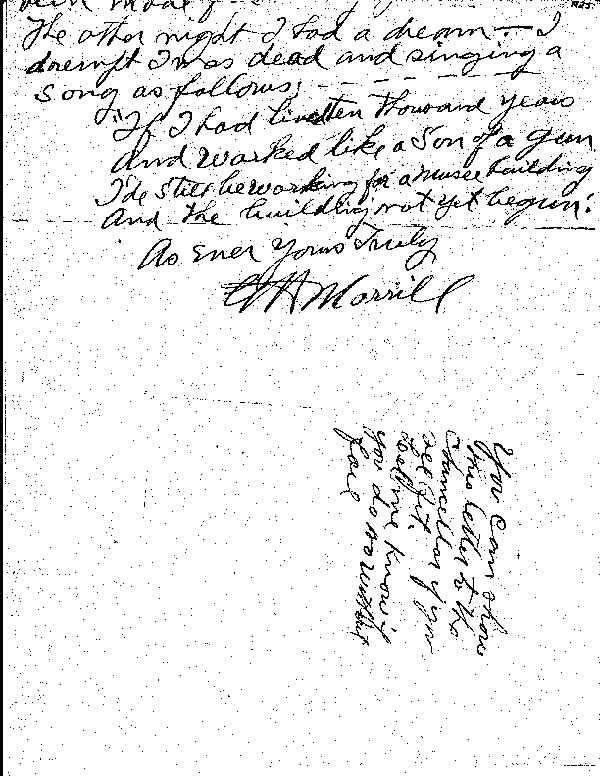 been made
The other night I had a dream — I
dreampt I was dead and singing a
Song as follows;
"If I had lived ten Thousand years
And worked like a Son of a gun
I'de Still be working for a Musee building
And The building not yet begun."
As Ever Yours Truly
Morrill
You can show
this letter to the
Councillor if you
see fit.
Let me know if
you do